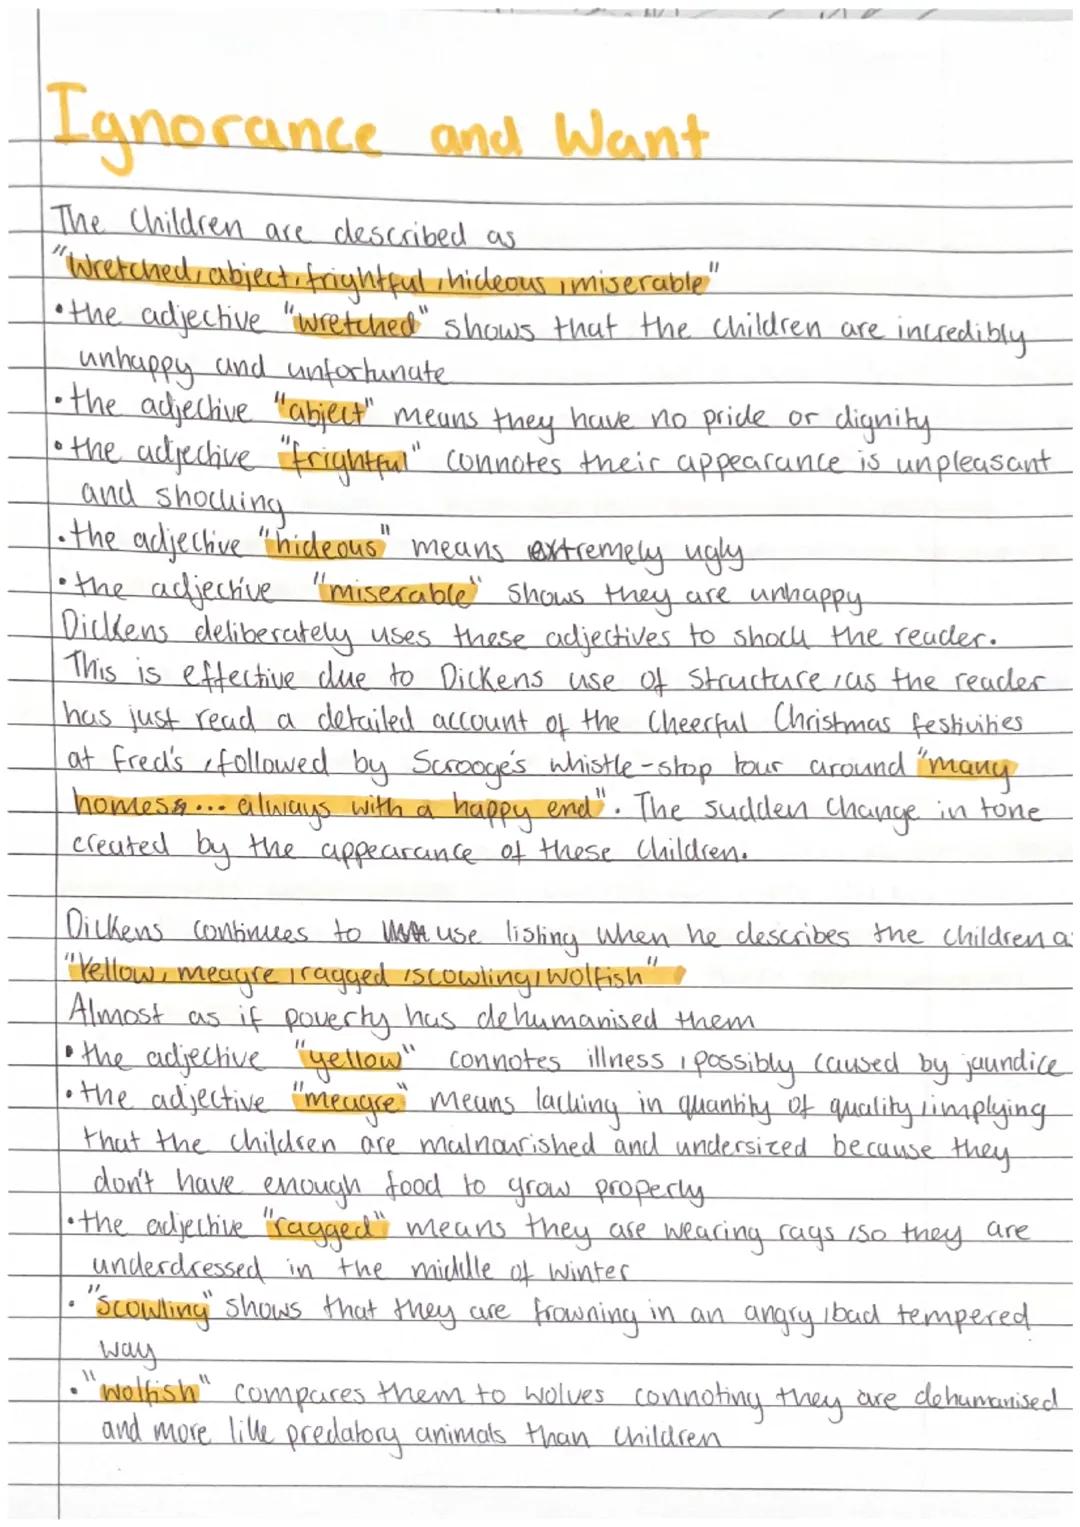 Ignorance and Want
The Children are described as
"Wretched, abject, frightful, hideous, miserable"
• the adjective "wretched" shows that the children are incredibly
unhappy and unfortunate
• the adjective "abject" means they have no pride or dignity
• the adjective "frightful" connotes their appearance is unpleasant
and shocking
• the adjective "hideous" means extremely ugly
• the adjective "miserable" shows they are unhappy
Dickens deliberately uses these adjectives to shock the reader.
This is effective due to Dickens use of structure, as the reader
has just read a detailed account of the cheerful Christmas festivities
at Fred's, followed by Scrooge's whistle-stop tour around "many
homes... always with a happy end". The sudden change in tone
created by the appearance of these children.
Dickens continues to use listing when he describes the children a
"Yellow, meagre, ragged, scowling, wolfish"
Almost as if poverty has dehumanised them
• the adjective "yellow" connotes illness, possibly caused by jaundice
• the adjective "meagre" means lacking in quantity of quality, implying
that the children are malnourished and undersized because they
don't have enough food to grow properly
• the adjective "ragged" means they are wearing rags, so they are
underdressed in the middle of winter
• "scowling" shows that they are frowning in an angry, bad tempered
way
• "wolfish" compares them to wolves connoting they are dehumanised
and more like predatory animals than children